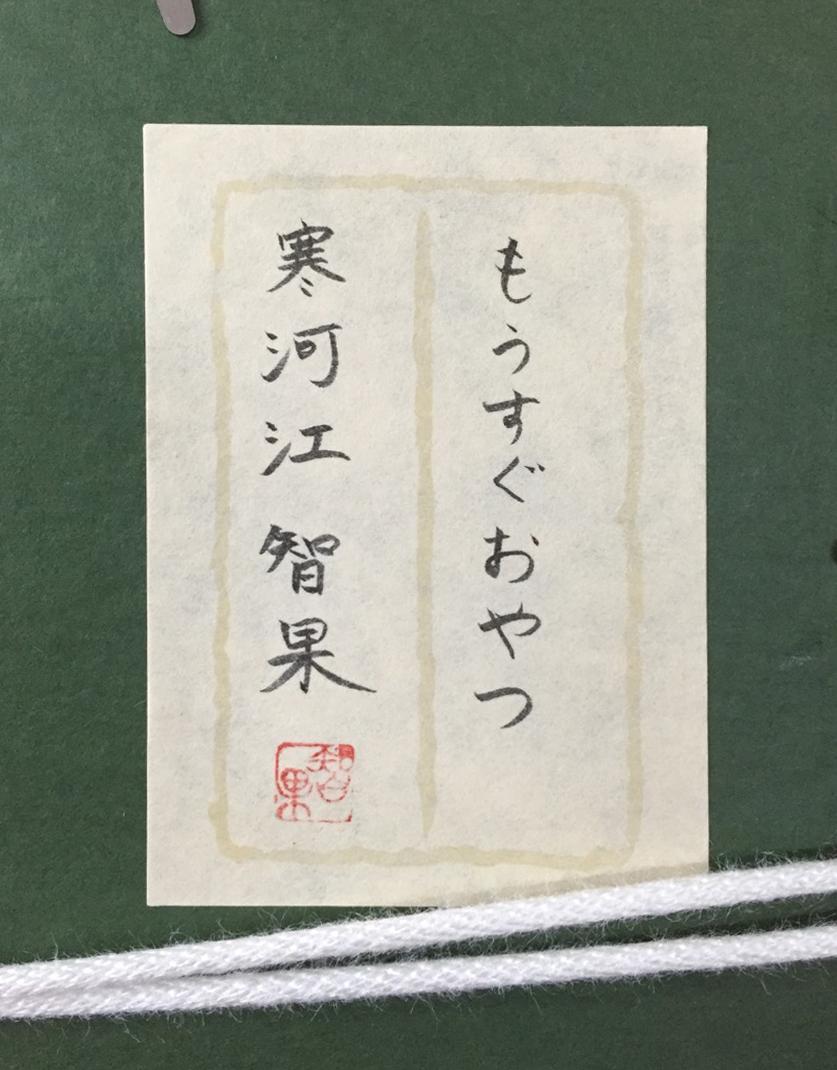 もうすぐおやつ
寒河江 智果
智果